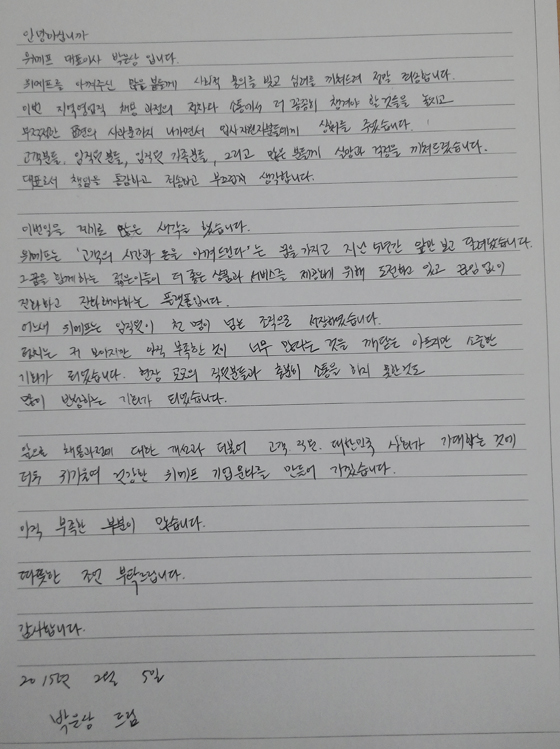 안녕하십니까
위메프 대표이사 박은상 입니다.
위메프를 아껴주신 많은 분들께 사회적 물의를 빚고 심려를 끼쳐드려 정말 죄송합니다.
이번 지역영업직 채용 과정의 절차나 소통에서 더 꼼꼼히 챙겨야 할 것들을 놓치고
무작정한 표면의 사과문까지 나가면서 입사지원자분들에게 상처를 주었습니다.
고객분들, 임직원분들, 임직원 가족분들, 그리고 많은 분들께 실망과 걱정을 끼쳐드렸습니다.
대표로서 책임을 통감하고 죄송하고 부끄럽게 생각합니다.
이번일을 계기로 많은 생각을 했습니다.
위메프는 '고객의 시간과 돈을 아껴드린다'는 꿈을 가지고 지난 5년간 앞만 보고 달려왔습니다.
그 꿈을 함께하는 젊은이들이 더 좋은 상품과 서비스를 제공키 위해 도전하고 있고 끊임없이
진화하고 진화해야하는 플랫폼입니다.
어느새 위메프는 임직원이 천 명이 넘는 조직으로 성장하였습니다.
덩치는 커 보이지만 아직 부족한 것이 너무 많다는 것을 깨닫는 아프지만 소중한
기회가 되었습니다. 현장 곳곳의 직원분들과 충분히 소통을 하지 못한것도
많이 반성하는 기회가 되었습니다.
앞으로 채용과정에 대한 개선과 더불어 고객, 직원, 대한민국 사회가 기대하는 것에
더욱 귀기울여 건강한 위메프 기업문화를 만들어 가겠습니다.
아직 부족한 부분이 많습니다.
따뜻한 조언 부탁드립니다.
감사합니다.
2015년 2월 5일
박은상 드림